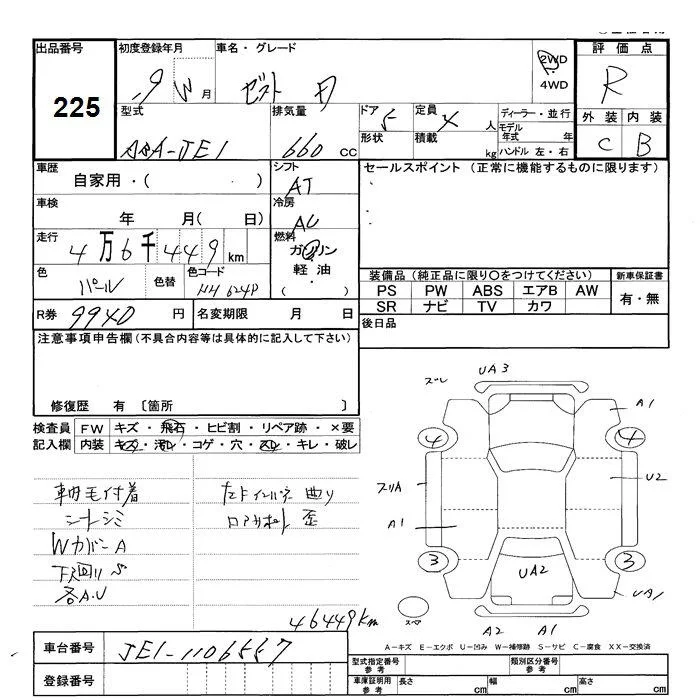 出品番号 初度登録年月 車名・グレード 評価点
225
19 年 月 ゼスト D 2WD 4WD R
型式 排気量 ドア 5 定員 4 人 ディーラー・並行 外装 内装
ABA-JE1 660 cc 形状 積載 kg モデル年式 年 C B
ハンドル 左・右
車歴 シフト セールスポイント (正常に機能するものに限ります)
自家用・( ) AT
車検 冷房
年 月( 日) AC
走行 燃料
4万6千449 km ガソリン
色 色替 色コード 軽油
パール NH624P ・( )
装備品 (純正品に限り○をつけてください) 新車保証書
PS PW ABS エアB AW 有・無
SR ナビ TV カワ
R券 9940 円 名変期限 月 日
後日品
注意事項申告欄 (不具合内容等は具体的に記入して下さい)
修復歴 有 〔箇所 〕
検査員 FW キズ・飛石・ヒビ割・リペア跡・×要
記入欄 内装 キズ・汚レ・コゲ・穴・スレ・キレ・破レ
車内毛付着
シートシミ
Wカバー A
下廻りS
各A.U
左Fインパネ 曲り
ロアサポート 歪
46449km
スレ UA3
A1
4 4
スリA U2
A1
3 3
UA2 UA1
スペア
A2 A1
A-キズ E-エクボ U-凹み W-補修跡 S-サビ C-腐食 XX-交換済
車台番号 JE1-1106557
登録番号
型式指定番号 参考 類別区分番号 参考
車庫証明用 参考 長さ cm 幅 cm 高さ cm